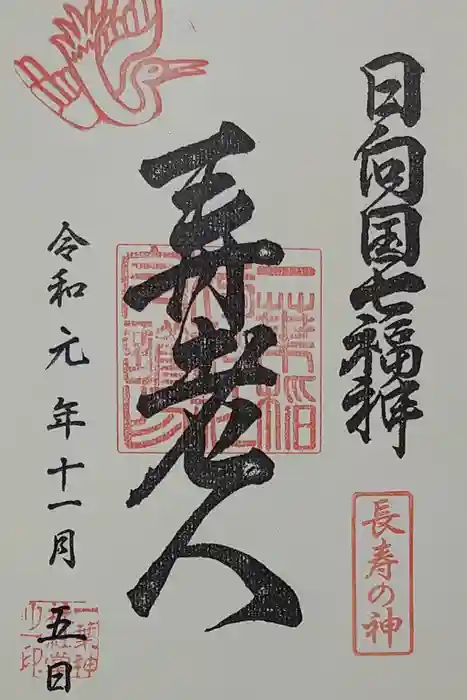 日向国七福神
長寿の神
寿老人
令和元年十一月五日